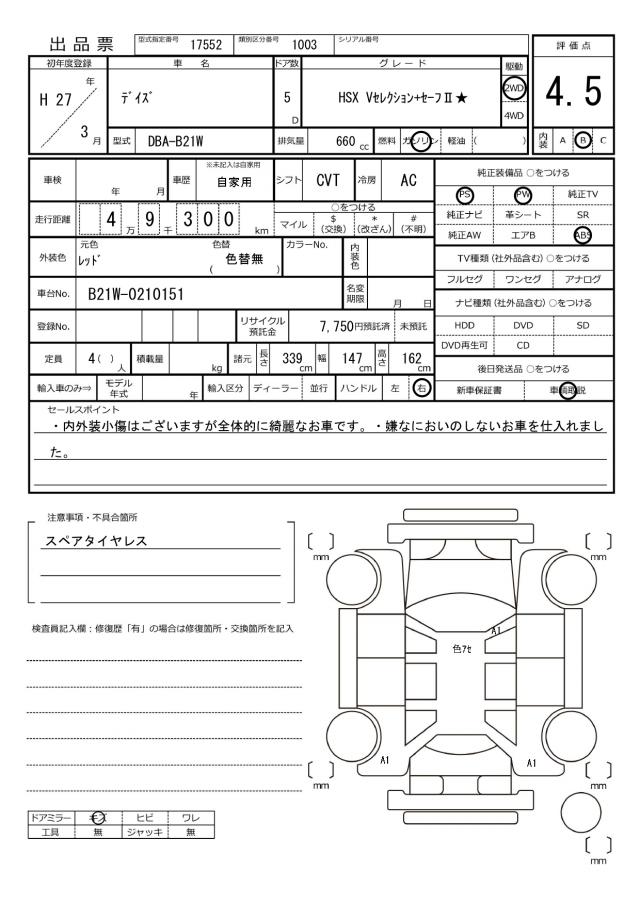 出品票
型式指定番号 17552 類別区分番号 1003 シリアル番号
評価点
初年度登録 車名 ドア数 グレード 駆動
H 27 年 3 月
デイズ
5 D
HSX Vセレクション+セーフⅡ★
2WD
4WD
4.5
型式 DBA-B21W 排気量 660 cc 燃料 ガソリン 軽油 ( )
内装 A B C
車検 年 月 車歴 ※未記入は自家用 自家用 シフト CVT 冷房 AC
走行距離 4 万 9 千 300 km
○をつける
マイル $ (交換) * (改ざん) # (不明)
外装色 元色 レッド 色替 ( 色替無 ) カラーNo. 内装色
車台No. B21W-0210151 名変期限 月 日
登録No. リサイクル預託金 7,750円預託済 未預託
定員 4 ( ) 人 積載量 kg 諸元 長さ 339 cm 幅 147 cm 高さ 162 cm
輸入車のみ⇒ モデル年式 年 輸入区分 ディーラー 並行 ハンドル 左 右
純正装備品 ○をつける
PS PW 純正TV
純正ナビ 革シート SR
純正AW エアB ABS
TV種類 (社外品含む) ○をつける
フルセグ ワンセグ アナログ
ナビ種類 (社外品含む) ○をつける
HDD DVD SD
DVD再生可 CD
後日発送品 ○をつける
新車保証書 車輌取説
セールスポイント
・内外装小傷はございますが全体的に綺麗なお車です。・嫌なにおいのしないお車を仕入れまし
た。
注意事項・不具合箇所
スペアタイヤレス
検査員記入欄：修復歴「有」の場合は修復箇所・交換箇所を記入
ドアミラー キズ ヒビ ワレ
工具 無 ジャッキ 無
mm
mm
A1
色アセ
A1
A1
mm
mm
mm